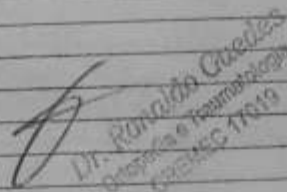 Dr. Ronaldo Guedes
Ortopedia e Traumatologia
CREMEC 17019